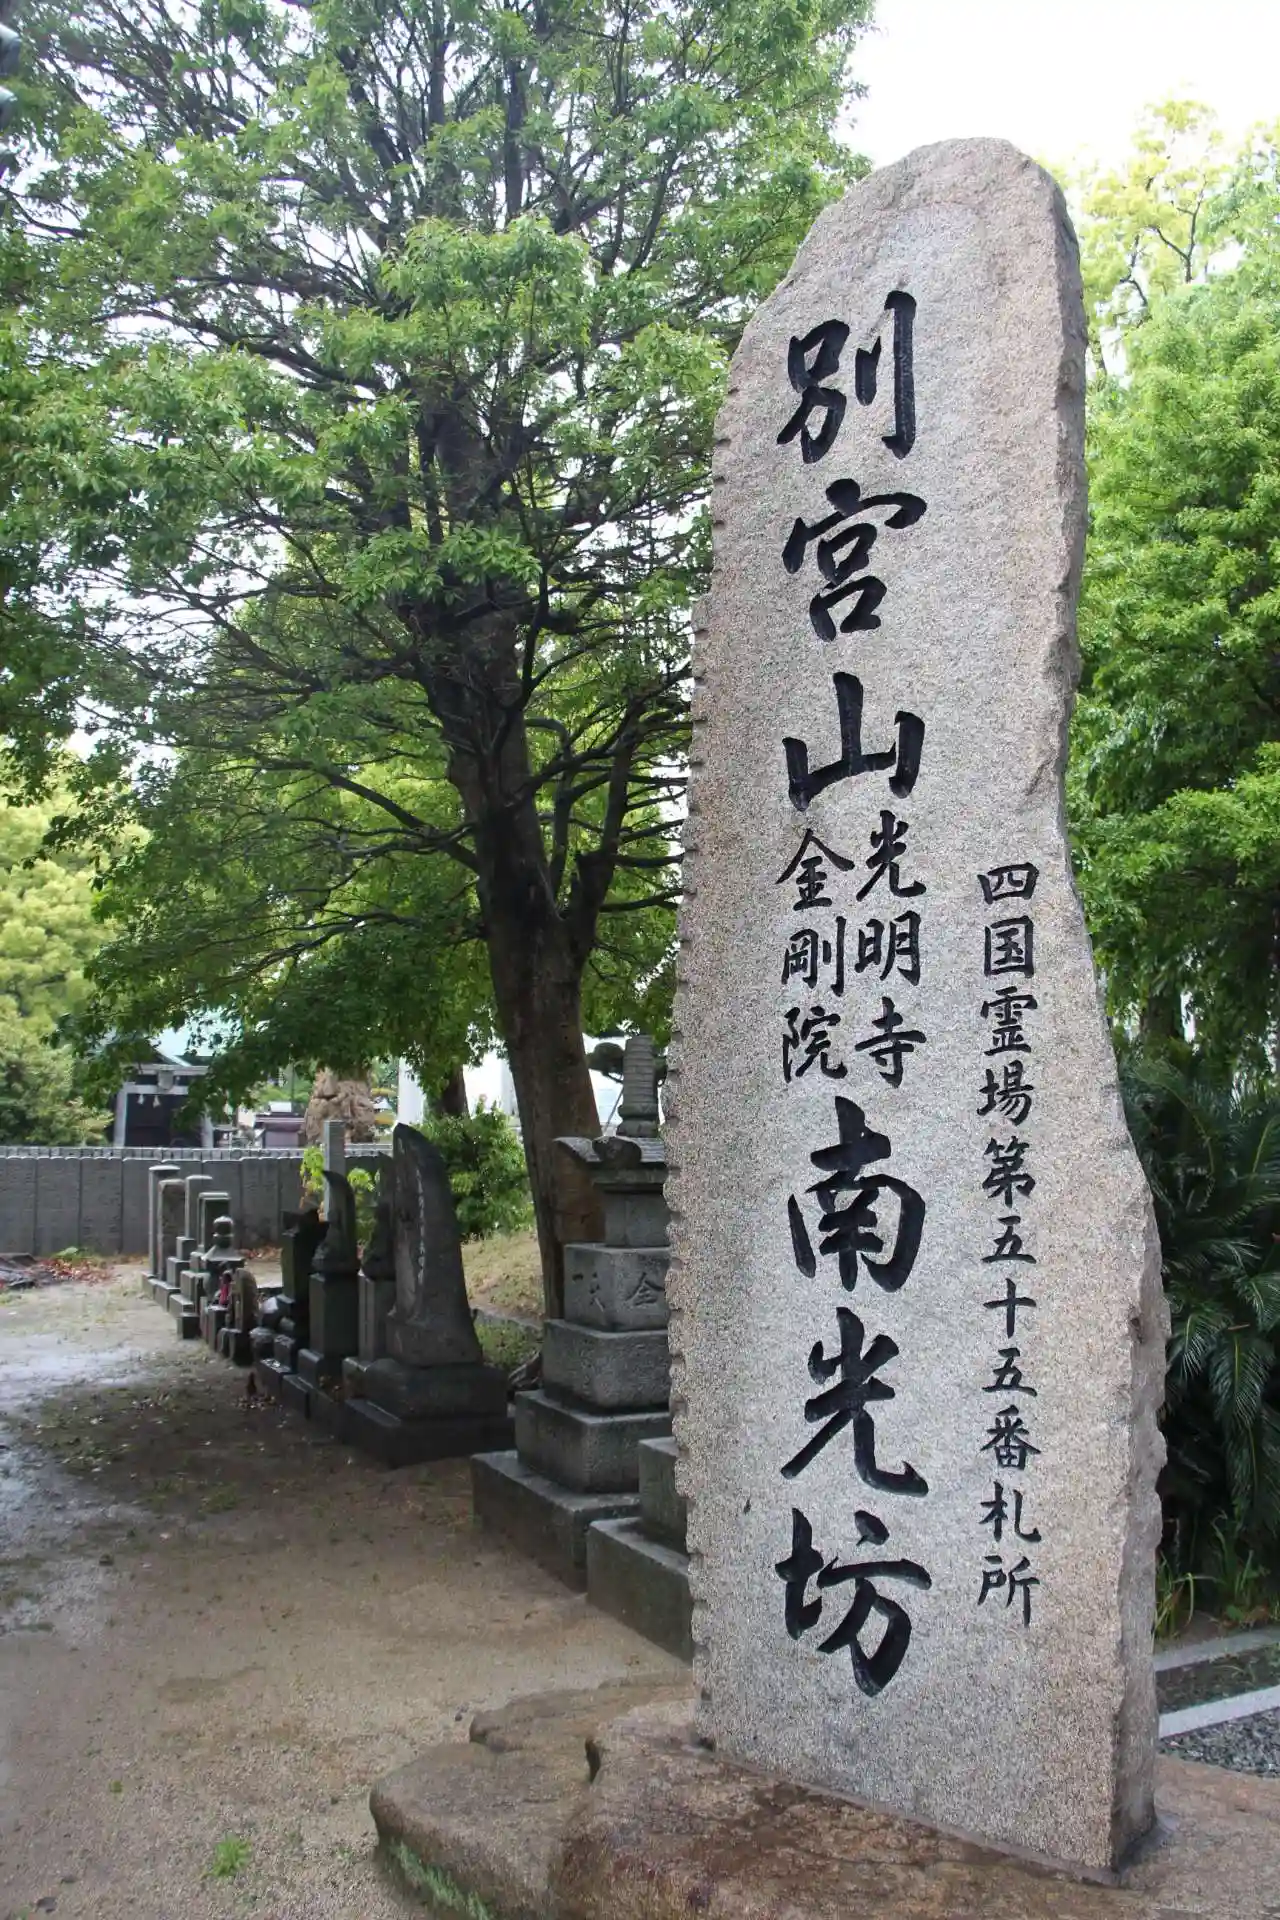 四国霊場第五十五番札所
別宮山
光明寺
金剛院
南光坊
金